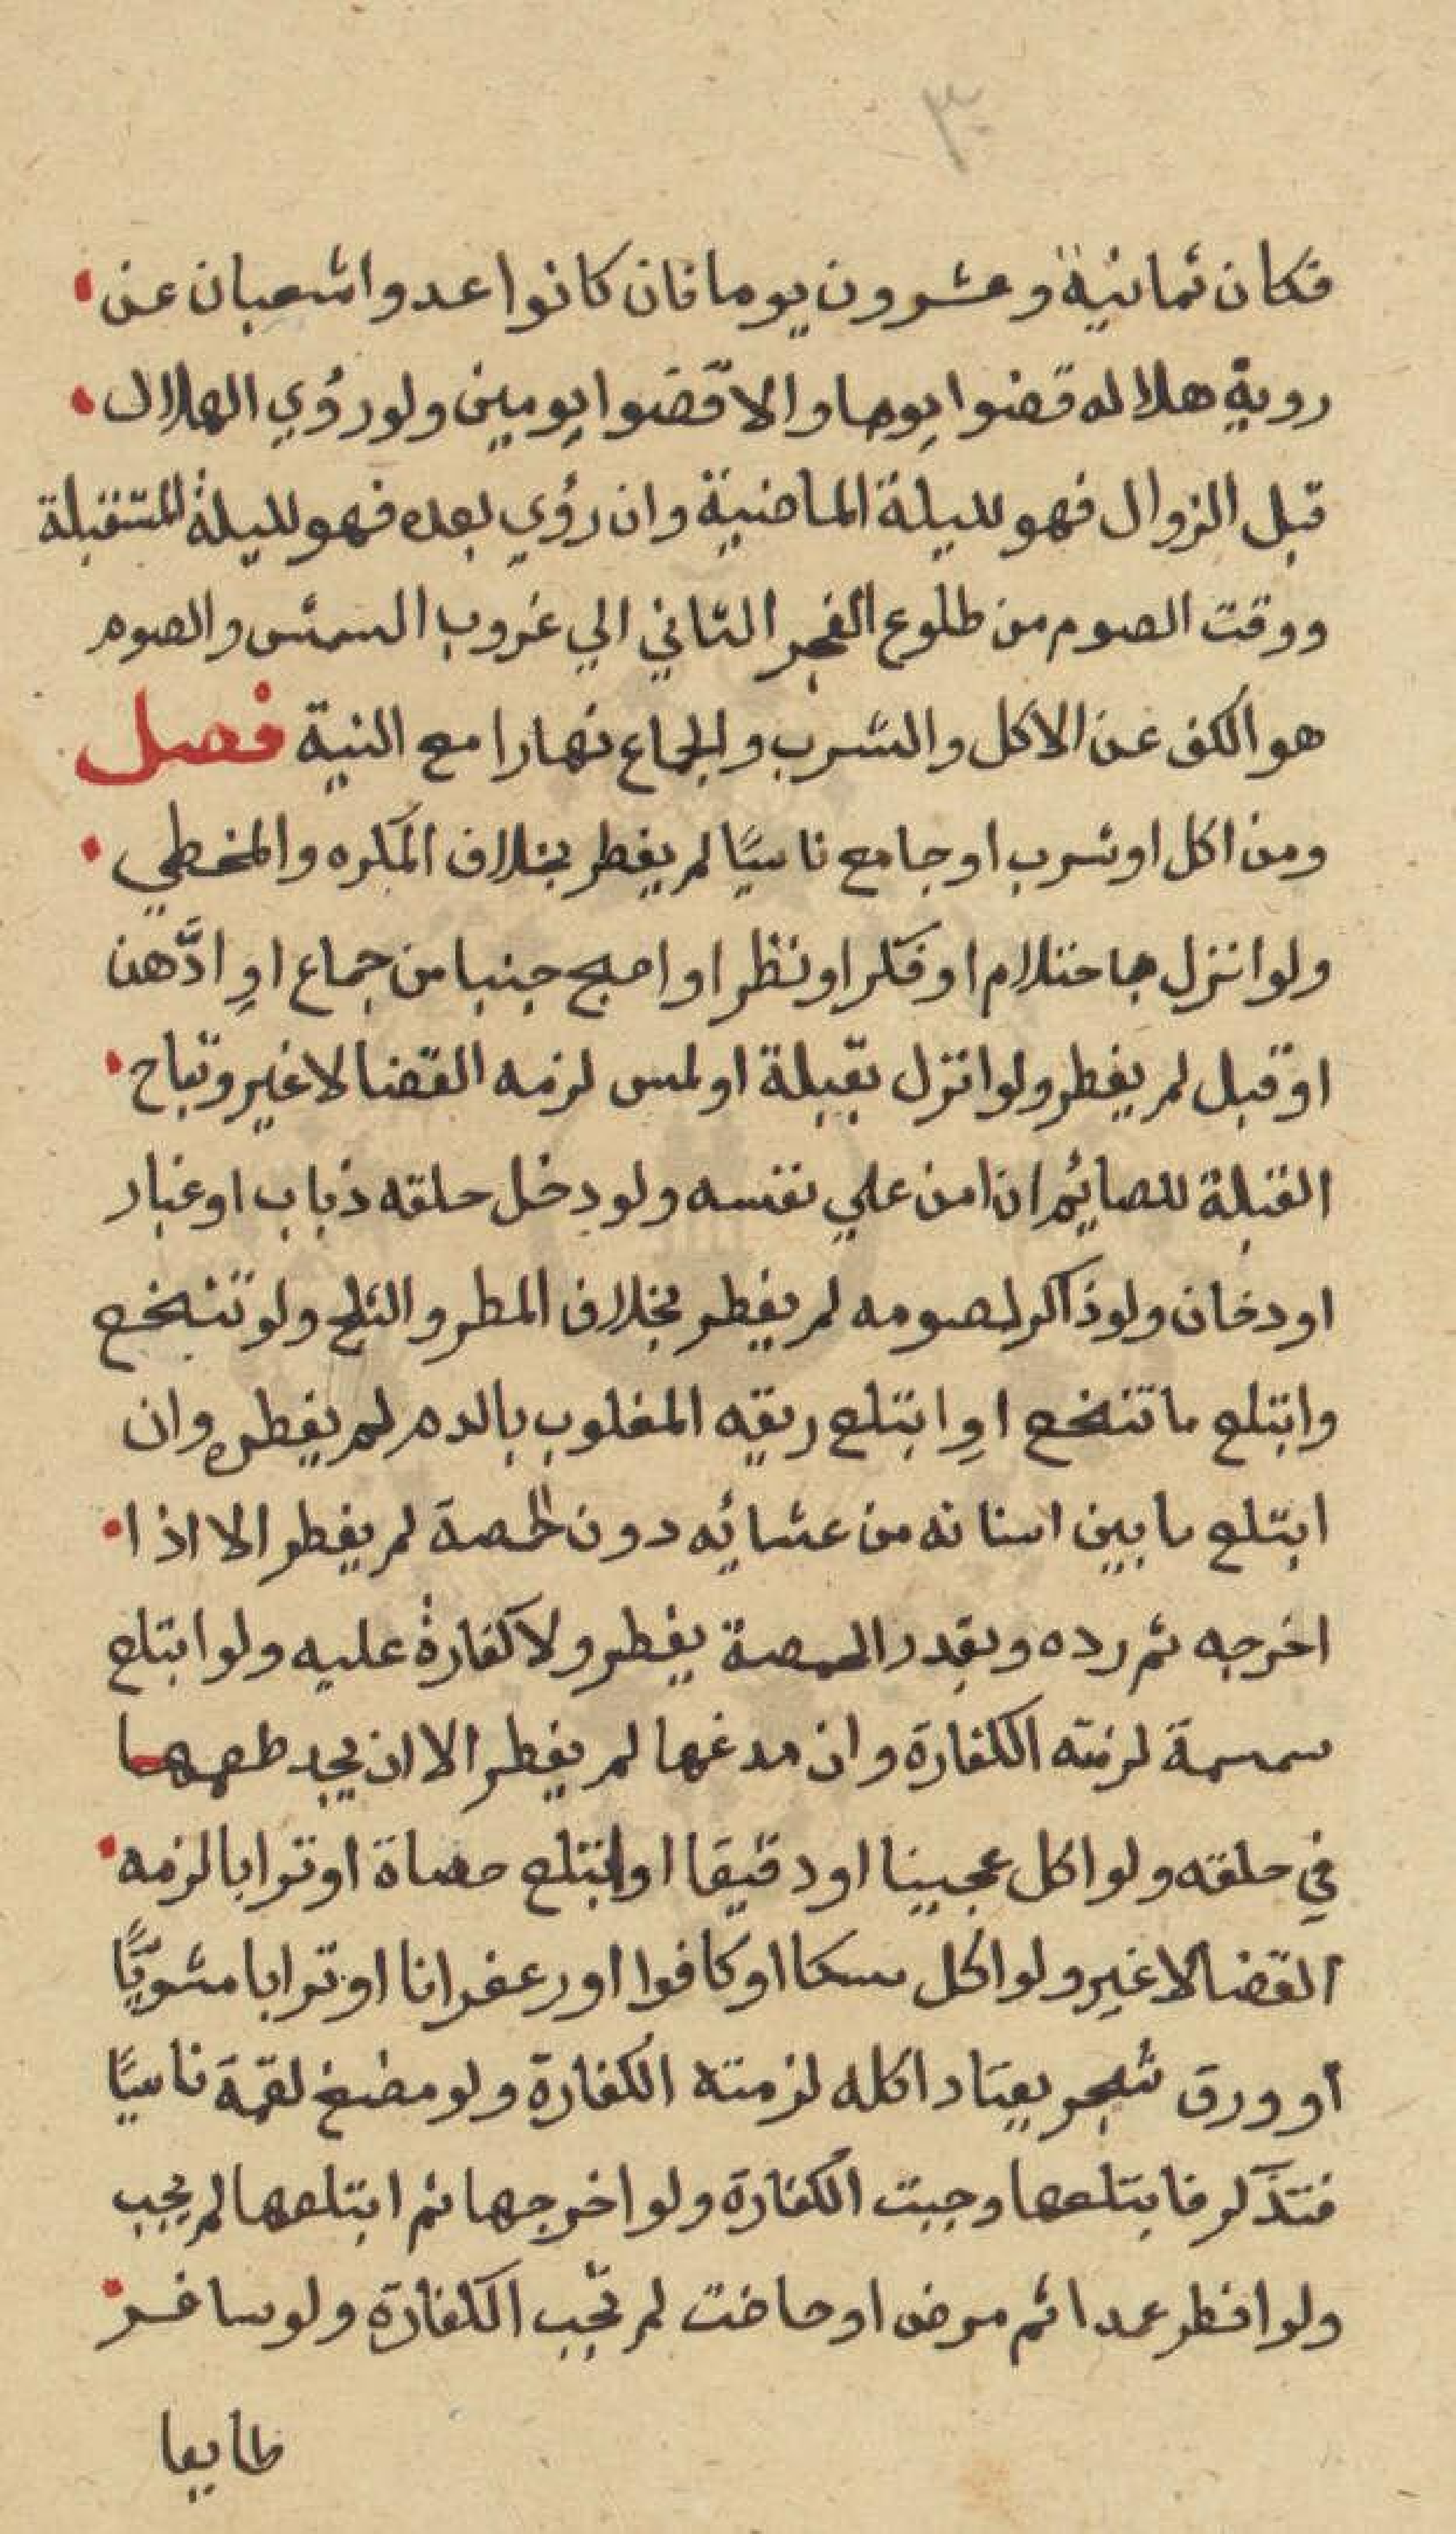 ٣٠
فكان ثمانية وعشرون يوما فان كانوا عدوا شعبان عن
روية هلاله قضوا يوما والا قضوا يومين ولو رؤي الهلال
قبل الزوال فهو لليلة الماضية وان رؤي بعده فهو لليلة المستقبلة
ووقت الصوم من طلوع الفجر الثاني الي غروب الشمس والصوم
هو الكف عن الاكل والشرب والجماع نهارا مع النية فصل
ومن اكل او شرب او جامع ناسيًا لم يفطر بخلاف المكره والمخطي
ولو انزل باحتلام او فكر او نظر او اصبح جنبا من جماع او ادَّهن
او قبل لم يفطر ولو انزل بقبلة او لمس لزمه القضا لا غير وتباح
القبلة للصايم ان امن علي نفسه ولو دخل حلقه ذباب او غبار
او دخان ولو ذاكر لصومه لم يفطر بخلاف المطر والثلج ولو تنخع
وابتلع ما تنخع او ابتلع ريقه المغلوب بالدم لم يفطر وان
ابتلع ما بين اسنانه من عشائه دون الحمصة لم يفطر الا اذا
اخرجه ثم رده وبقدر الحمصة يفطر ولا كفارة عليه ولو ابتلع
سمسمة لزمته الكفارة وان مدغها لم يفطر الا ان يجد طعمها
في حلقه ولو اكل عجينا او دقيقا او ابتلع حصاة او ترابا لزمه
القضا لا غير ولو اكل مسكا او كافورا او زعفرانا او ترابا مشويًّا
او ورق شجر يعتاد اكله لزمته الكفارة ولو مضغ لقمة ناسيًا
فتذكر فابتلعها وجبت الكفارة ولو اخرجها ثم ابتلعها لم يجب
ولو افطر عمدا ثم مرض او حاضت لم تجب الكفارة ولو سافر
طايعا